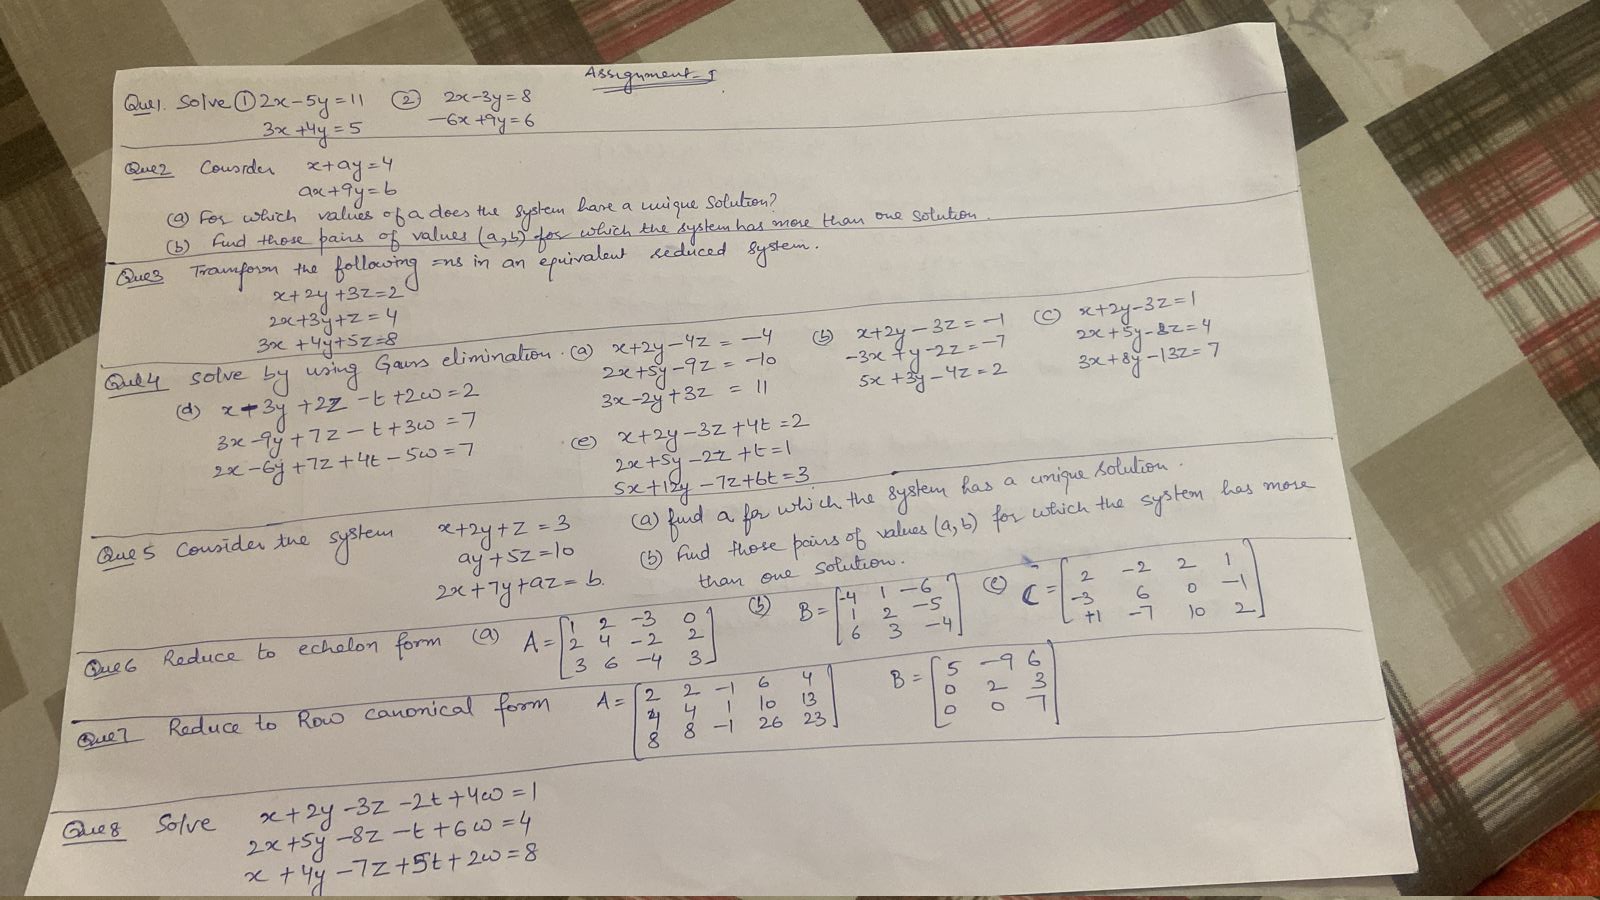 Assignment-I
Que1. Solve ① 2x-5y=11 ② 2x-3y=8
3x+4y=5 -6x+9y=6
Que2 Consider x+ay=4
ax+9y=b
(a) For which values of a does the system have a unique solution?
(b) Find those pairs of values (a,b) for which the system has more than one solution.
Que3 Transform the following =ns in an equivalent reduced system.
x+2y+3z=2
2x+3y+z=4
3x+4y+5z=8
Que4 Solve by using Gauss elimination. (a) x+2y-4z=-4 (b) x+2y-3z=-1 (c) x+2y-3z=1
2x+5y-9z=-10 -3x+y-2z=-7 2x+5y-8z=4
3x-2y+3z=11 5x+3y-4z=2 3x+8y-13z=7
(d) x-3y+2z-t+2w=2
3x-9y+7z-t+3w=7
2x-6y+7z+4t-5w=7
(e) x+2y-3z+4t=2
2x+5y-2z+t=1
5x+12y-7z+6t=3
Que5 Consider the system x+2y+z=3 (a) find a for which the system has a unique solution.
ay+5z=10 (b) Find those pairs of values (a,b) for which the system has more
2x+7y+az=b. than one solution.
Que6 Reduce to echelon form (a) A= [1 2 -3 0 (b) B= [-4 1 -6 (c) C= [2 -2 2 1
2 4 -2 2 1 2 -5 -3 6 0 -1
3 6 -4 3] 6 3 -4] +1 -7 10 2]
Que7 Reduce to Row canonical form A= [2 2 -1 6 4 B= [5 -9 6
4 4 1 10 13 0 2 3
8 8 -1 26 23] 0 0 7]
Que8 Solve x+2y-3z-2t+4w=1
2x+5y-8z-t+6w=4
x+4y-7z+5t+2w=8